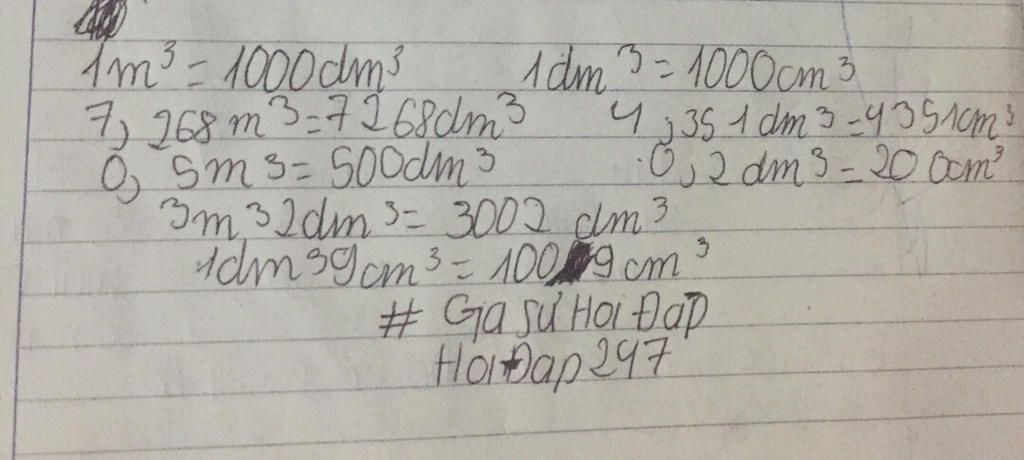 1m³ = 1000dm³ 1dm³ = 1000cm³
7, 268m³ = 7268dm³ 4, 351dm³ = 4351cm³
0, 5m³ = 500dm³ 0, 2dm³ = 200cm³
3m³2dm³ = 3002 dm³
1dm³9cm³ = 1009cm³
# Gia sư Hoi Đap
Hoi Đap 247